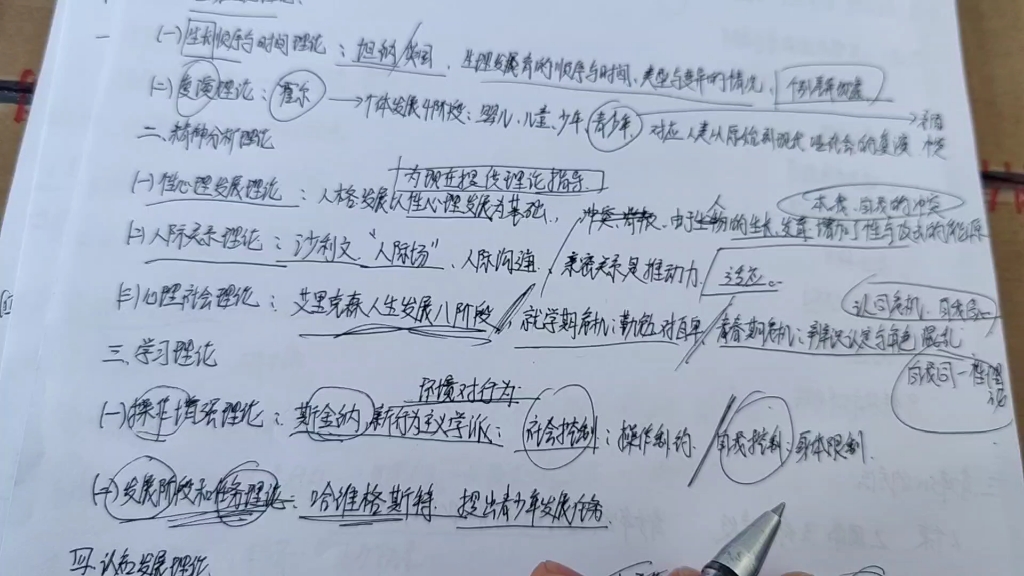 (一)生长顺序与时间理论:担的/格塞尔、生理发展有的顺序与时间、类型与差年的情况、个别差异
(二)复演理论:霍尔→个体发展4阶段:婴儿、儿童、少年、青少年 对应人类从原始到现代 社会的复演
二、精神分析理论
为现在提供理论指导
(一)性心理发展理论:人格发展以性心理发展为基础、冲突、由于生物的生长、发育 增加了性与攻击的
本我、自我的冲突
(二)人际关系理论:沙利文"人际场"、人际沟通、亲密关系是推动力
适应。
(三)心理社会理论:艾里克森人生发展八阶段,就学期危机:勤勉对自卑 青春期危机:
认同危机、
三、学习理论
自我同一性
环境对行为
(一)操作增强理论:斯金纳,新行为主义学派:社会控制:操作制约/自我控制:身体限制.
(二)发展阶段和任务理论:哈维格斯特、提出青少年发展任务
四.认知发展理论